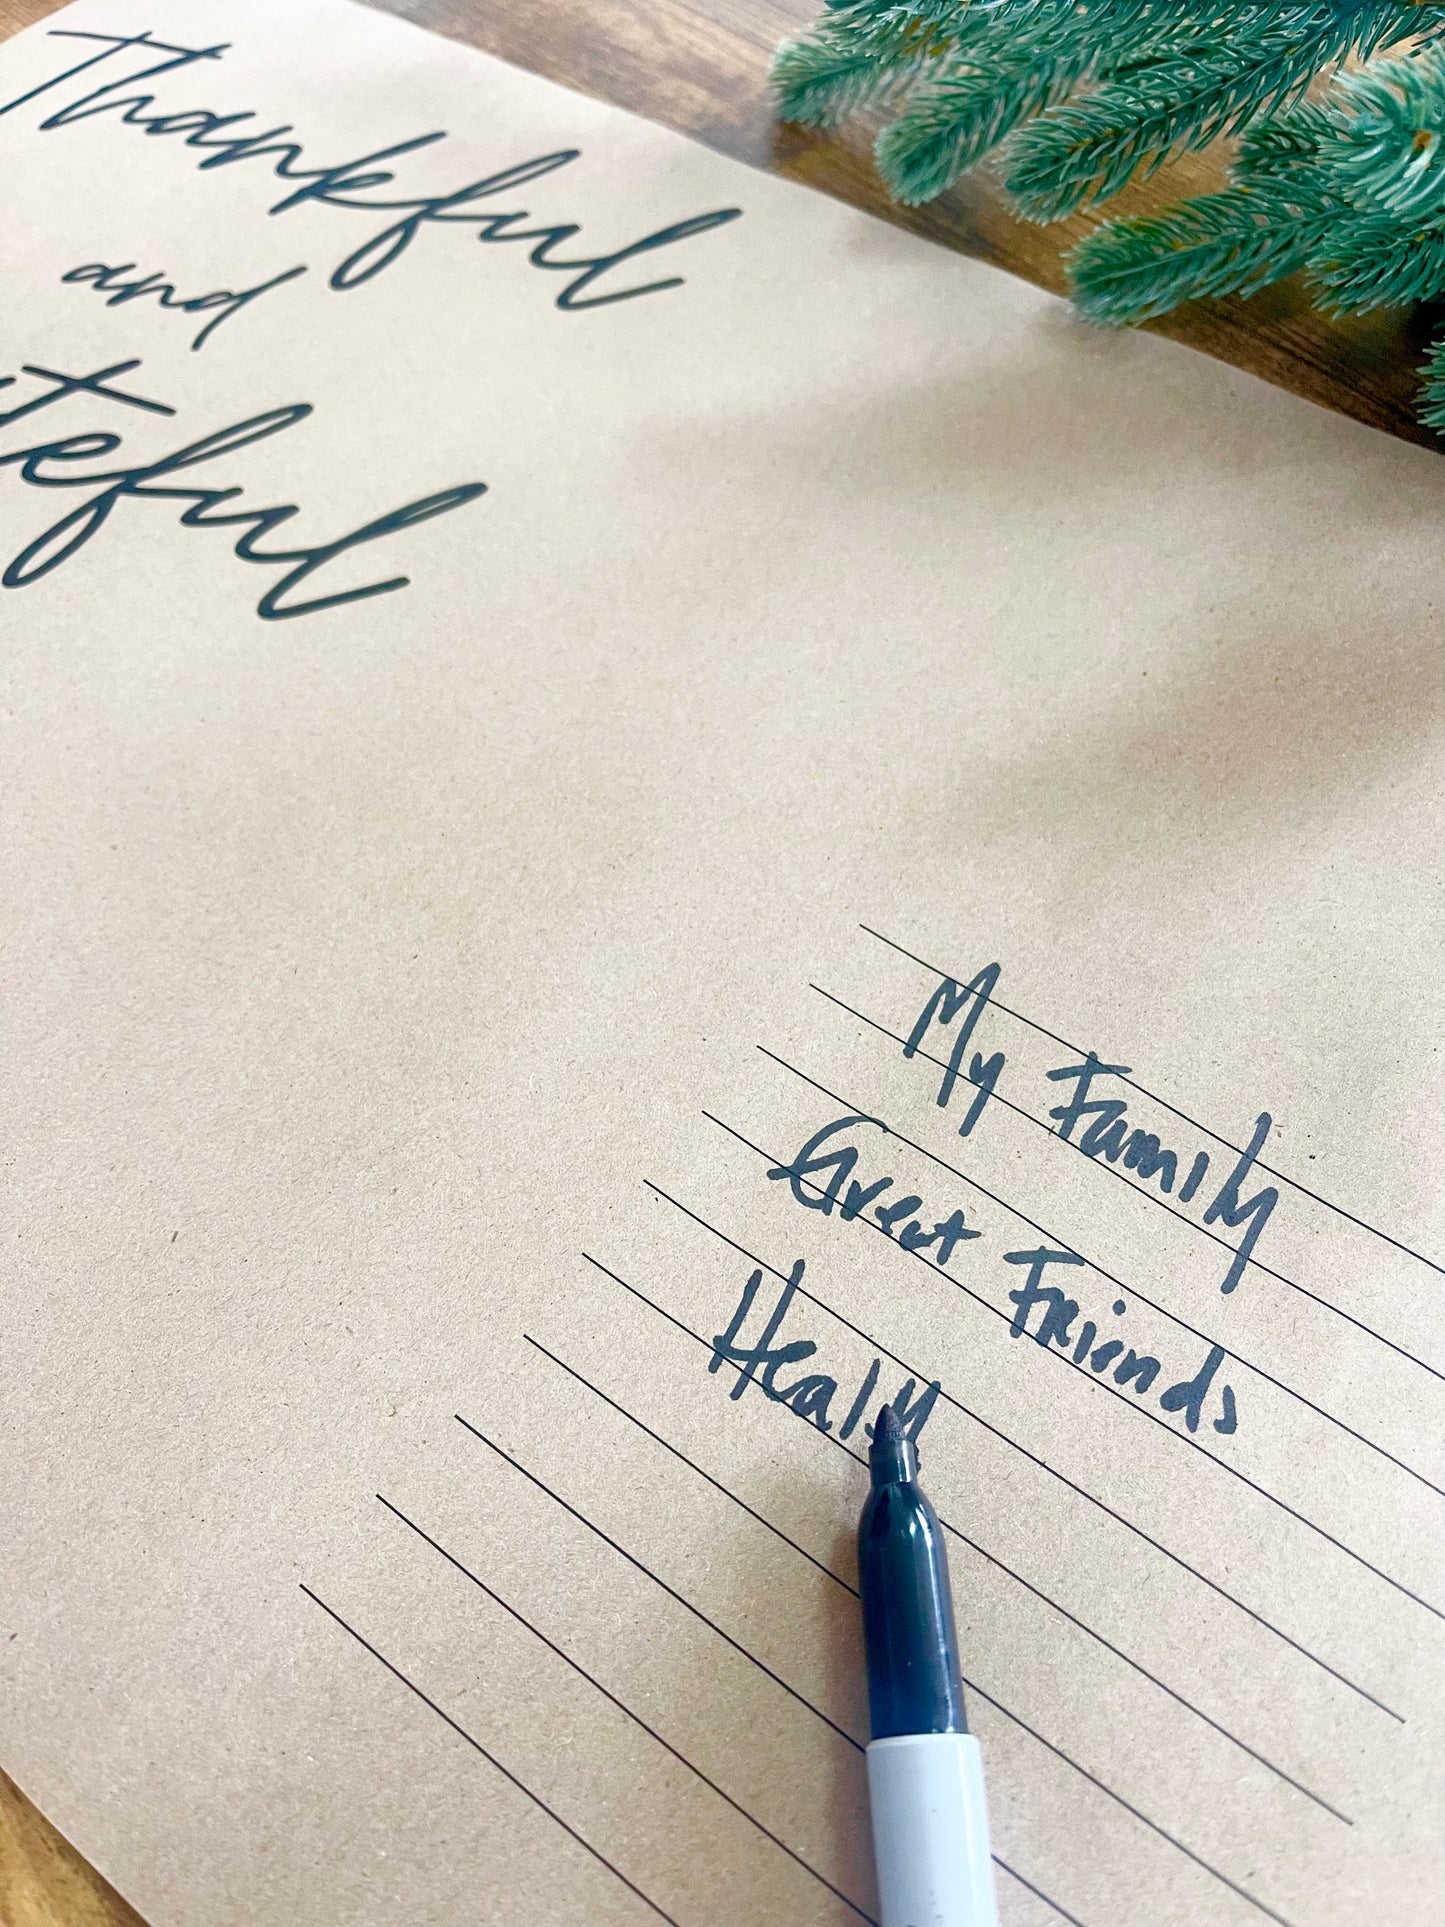 Thankful
and
teful
My Family
Great Friends